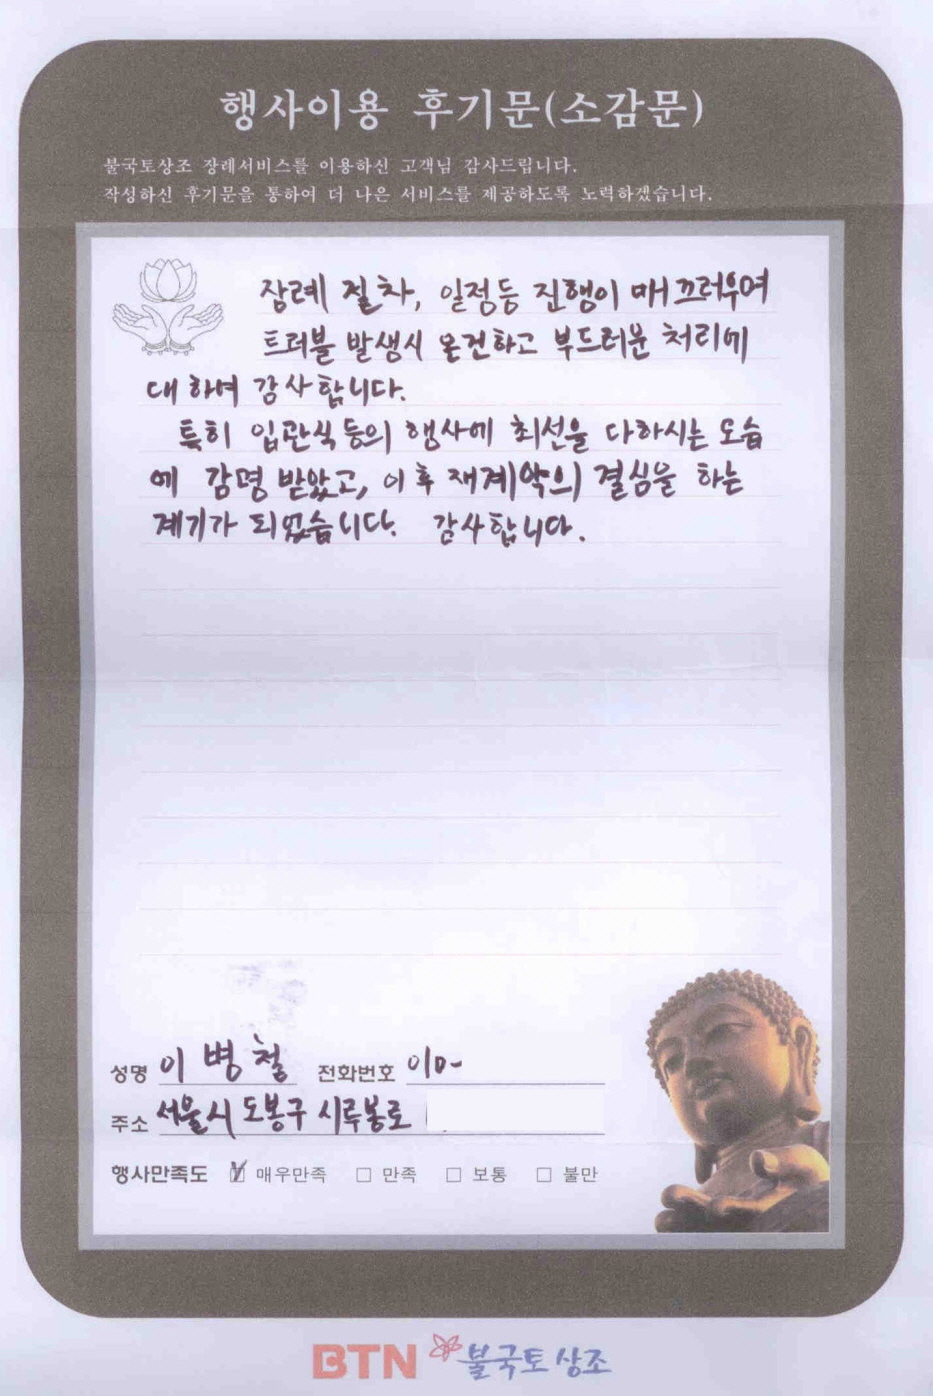 행사이용 후기문(소감문)
불국토상조 장례서비스를 이용하신 고객님 감사드립니다.
작성하신 후기문을 통하여 더 나은 서비스를 제공하도록 노력하겠습니다.
장례 절차, 일정등 진행이 매끄러우며
트러블 발생시 온건하고 부드러운 처리에
대하여 감사합니다.
특히 입관식등의 행사에 최선을 다하시는 모습
에 감명 받았고, 이후 재계약의 결심을 하는
계기가 되었습니다. 감사합니다.
성명 이병철 전화번호 010-
주소 서울시 도봉구 시루봉로
행사만족도 ☑ 매우만족 □ 만족 □ 보통 □ 불만
BTN 불국토 상조